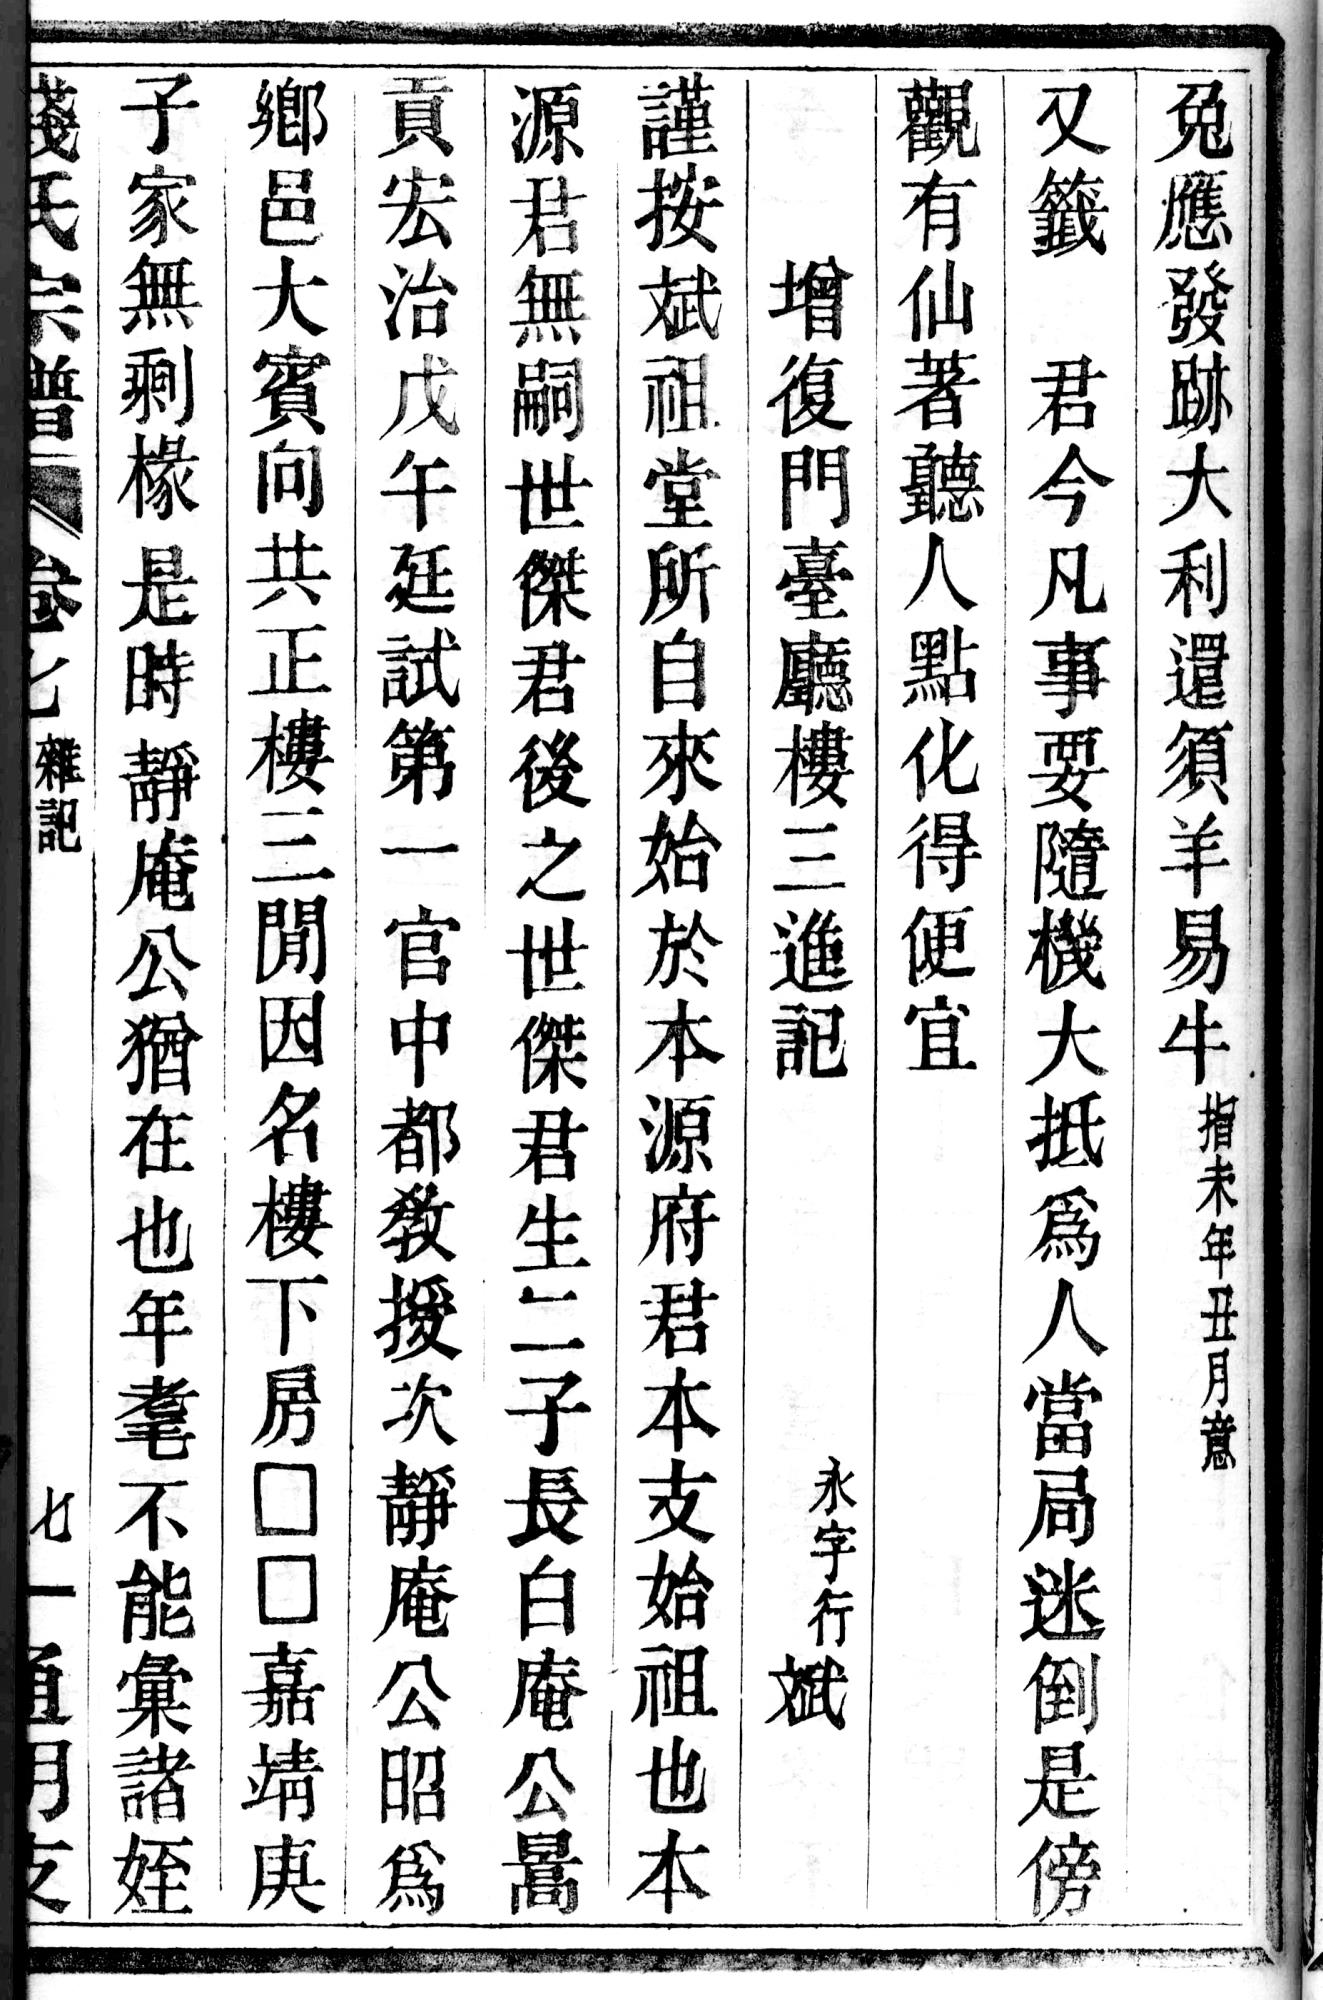 兔應發跡大利還須羊易牛指未年丑月意
又籤　君今凡事要隨機大抵爲人當局迷倒是傍
觀有仙著聽人點化得便宜
增復門臺廳樓三進記　永字行斌
謹按斌祖堂所自來始於本源府君本支始祖也本
源君無嗣世傑君後之世傑君生二子長白庵公暠
貢宏治戊午廷試第一官中都教授次靜庵公昭爲
鄉邑大賓向共正樓三間因名樓下房□□嘉靖庚
子家無剩椽是時靜庵公猶在也年耄不能彙諸姪
錢氏宗譜　卷七　雜記　七一　通明支